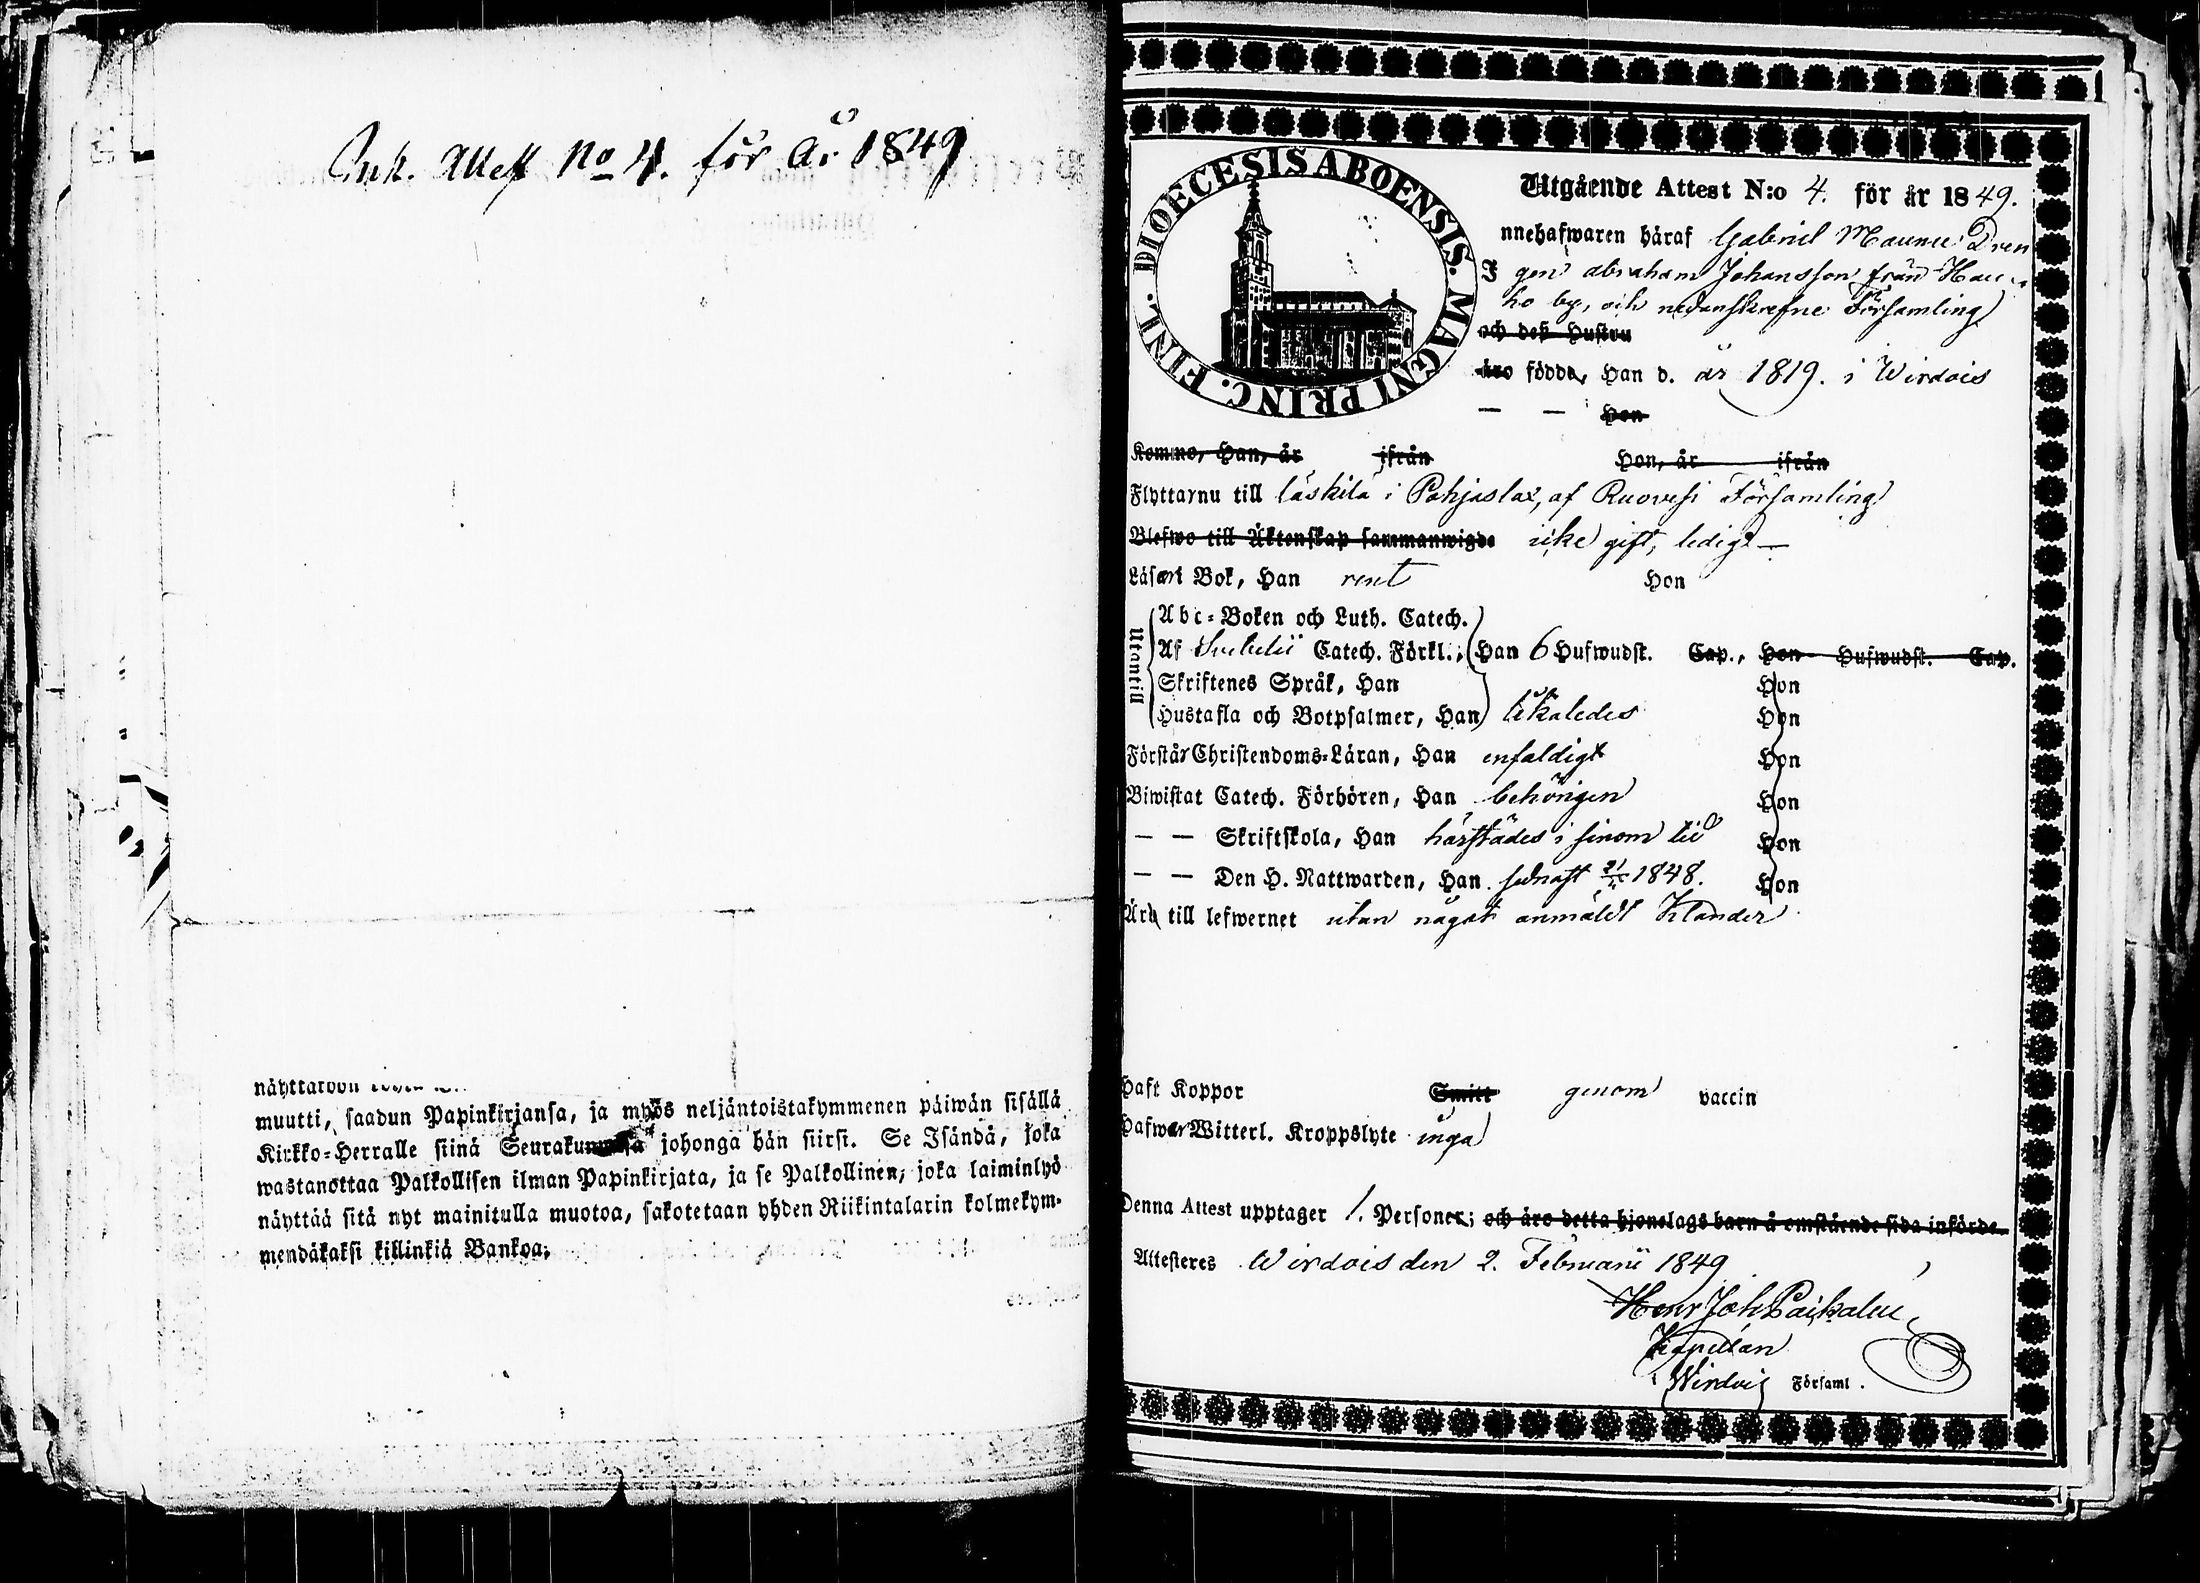 Ink. Attest No 4. för År 1849
muutti, saadun Papinkirjansa, ja myös neljäntoistakymmenen päiwän sisällä
Kirkko-Herralle siinä Seurakunnassa johonga hän siirsi. Se Isändä, joka
wastanottaa Palkollisen ilman Papinkirjata, ja se Palkollinen, joka laiminlyö
näyttää sitä nyt mainitulla muotoa, sakotetaan yhden Riikintalarin kolmekym-
mendäkaksi killinkiä Bankoa.
DIOECESIS ABOENSIS. MAGNI PRINC. FINL.
Utgående Attest N:o 4. för år 1849.
Innehafwaren häraf Gabriel Maunu Dren
gen Abraham Johansson från Hau
ho by, och nedanskrefne Församling
och deß Hustru
äro födde, Han d. år 1819. i Wirdois
— — Hon
Komne, Han, år ifrån Hon, år ifrån
Flyttarnu till Läskilä i Pohjaslax, af Ruovesi Församling
Blefwo till Äktenskap sammanwigde icke gift, ledig —
Läsa i Bok, Han rent Hon
Utantill
Abc-Boken och Luth. Catech.
Af Svebelii Catech. Förkl., Han 6 Hufwudst. Cap., Hon Hufwudst. Cap.
Skriftenes Språk, Han Hon
Hustafla och Botpsalmer, Han likaledes Hon
Förstår Christendoms-Läran, Han enfaldigt Hon
Biwistat Catech. Förhören, Han behörigen Hon
— — Skriftskola, Han härstädes i sinom tid Hon
— — Den H. Nattwarden, Han sednast 1848. Hon
Är till lefwernet utan något anmäldt klander
Haft Koppor Smitt genom vaccin
Hafwer Witterl. Kroppslyte inga
Denna Attest upptager 1. Personer; och äro detta hjonelags barn å omstående sida införde.
Attesteres Wirdois den 2. Februarii 1849
Henr Joh
Kapellan
i Wirdois Församl.